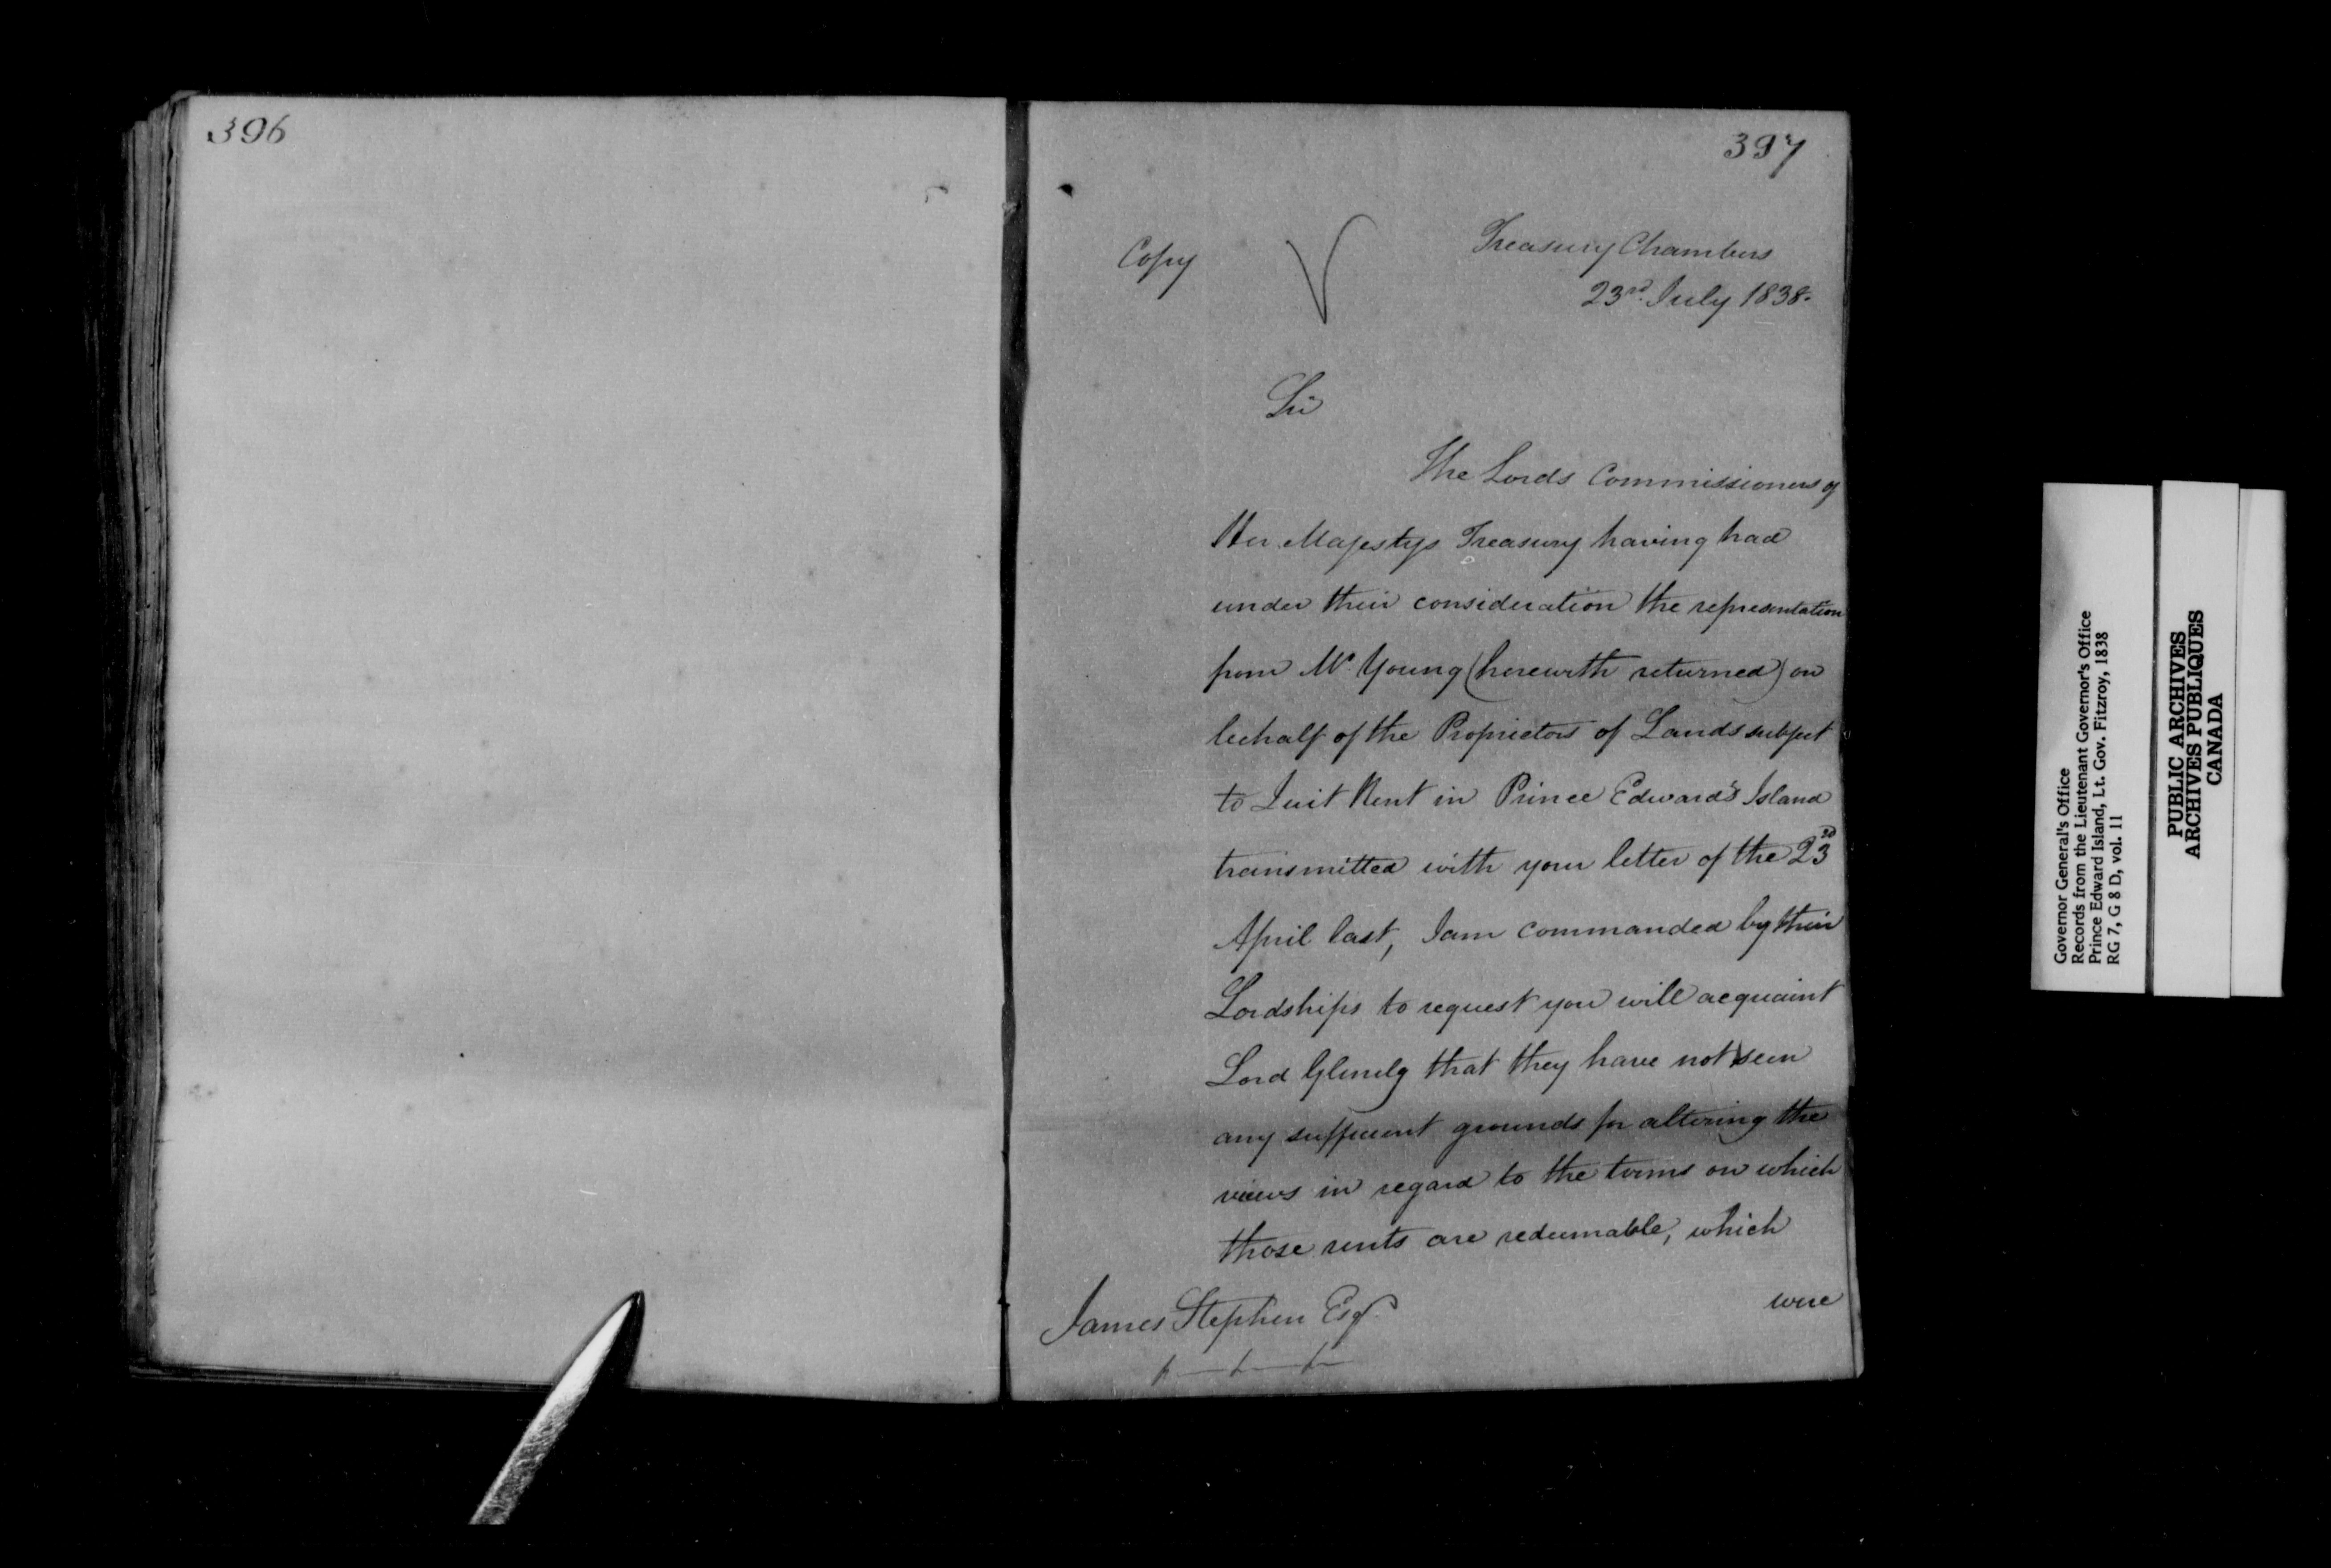 396
397
Copy
Treasury Chambers
23rd. July 1838.
Sir
The Lords Commissioners of
Her Majestys Treasury having had
under their consideration the representation
from Mr. Young (herewith returned) on
behalf of the Proprietors of Lands subject
to Quit Rent in Prince Edward's Island
transmitted with your letter of the 23rd
April last, I am commanded by their
Lordships to request you will acquaint
Lord Glenelg that they have not seen
any sufficient grounds for altering the
views in regard to the terms on which
those rents are redeemable, which
were
James Stephen Esqr.
Governor General's Office
Records from the Lieutenant Governor's Office
Prince Edward Island, Lt. Gov. Fitzroy, 1838
RG 7, G 8 D, vol. 11
PUBLIC ARCHIVES
ARCHIVES PUBLIQUES
CANADA